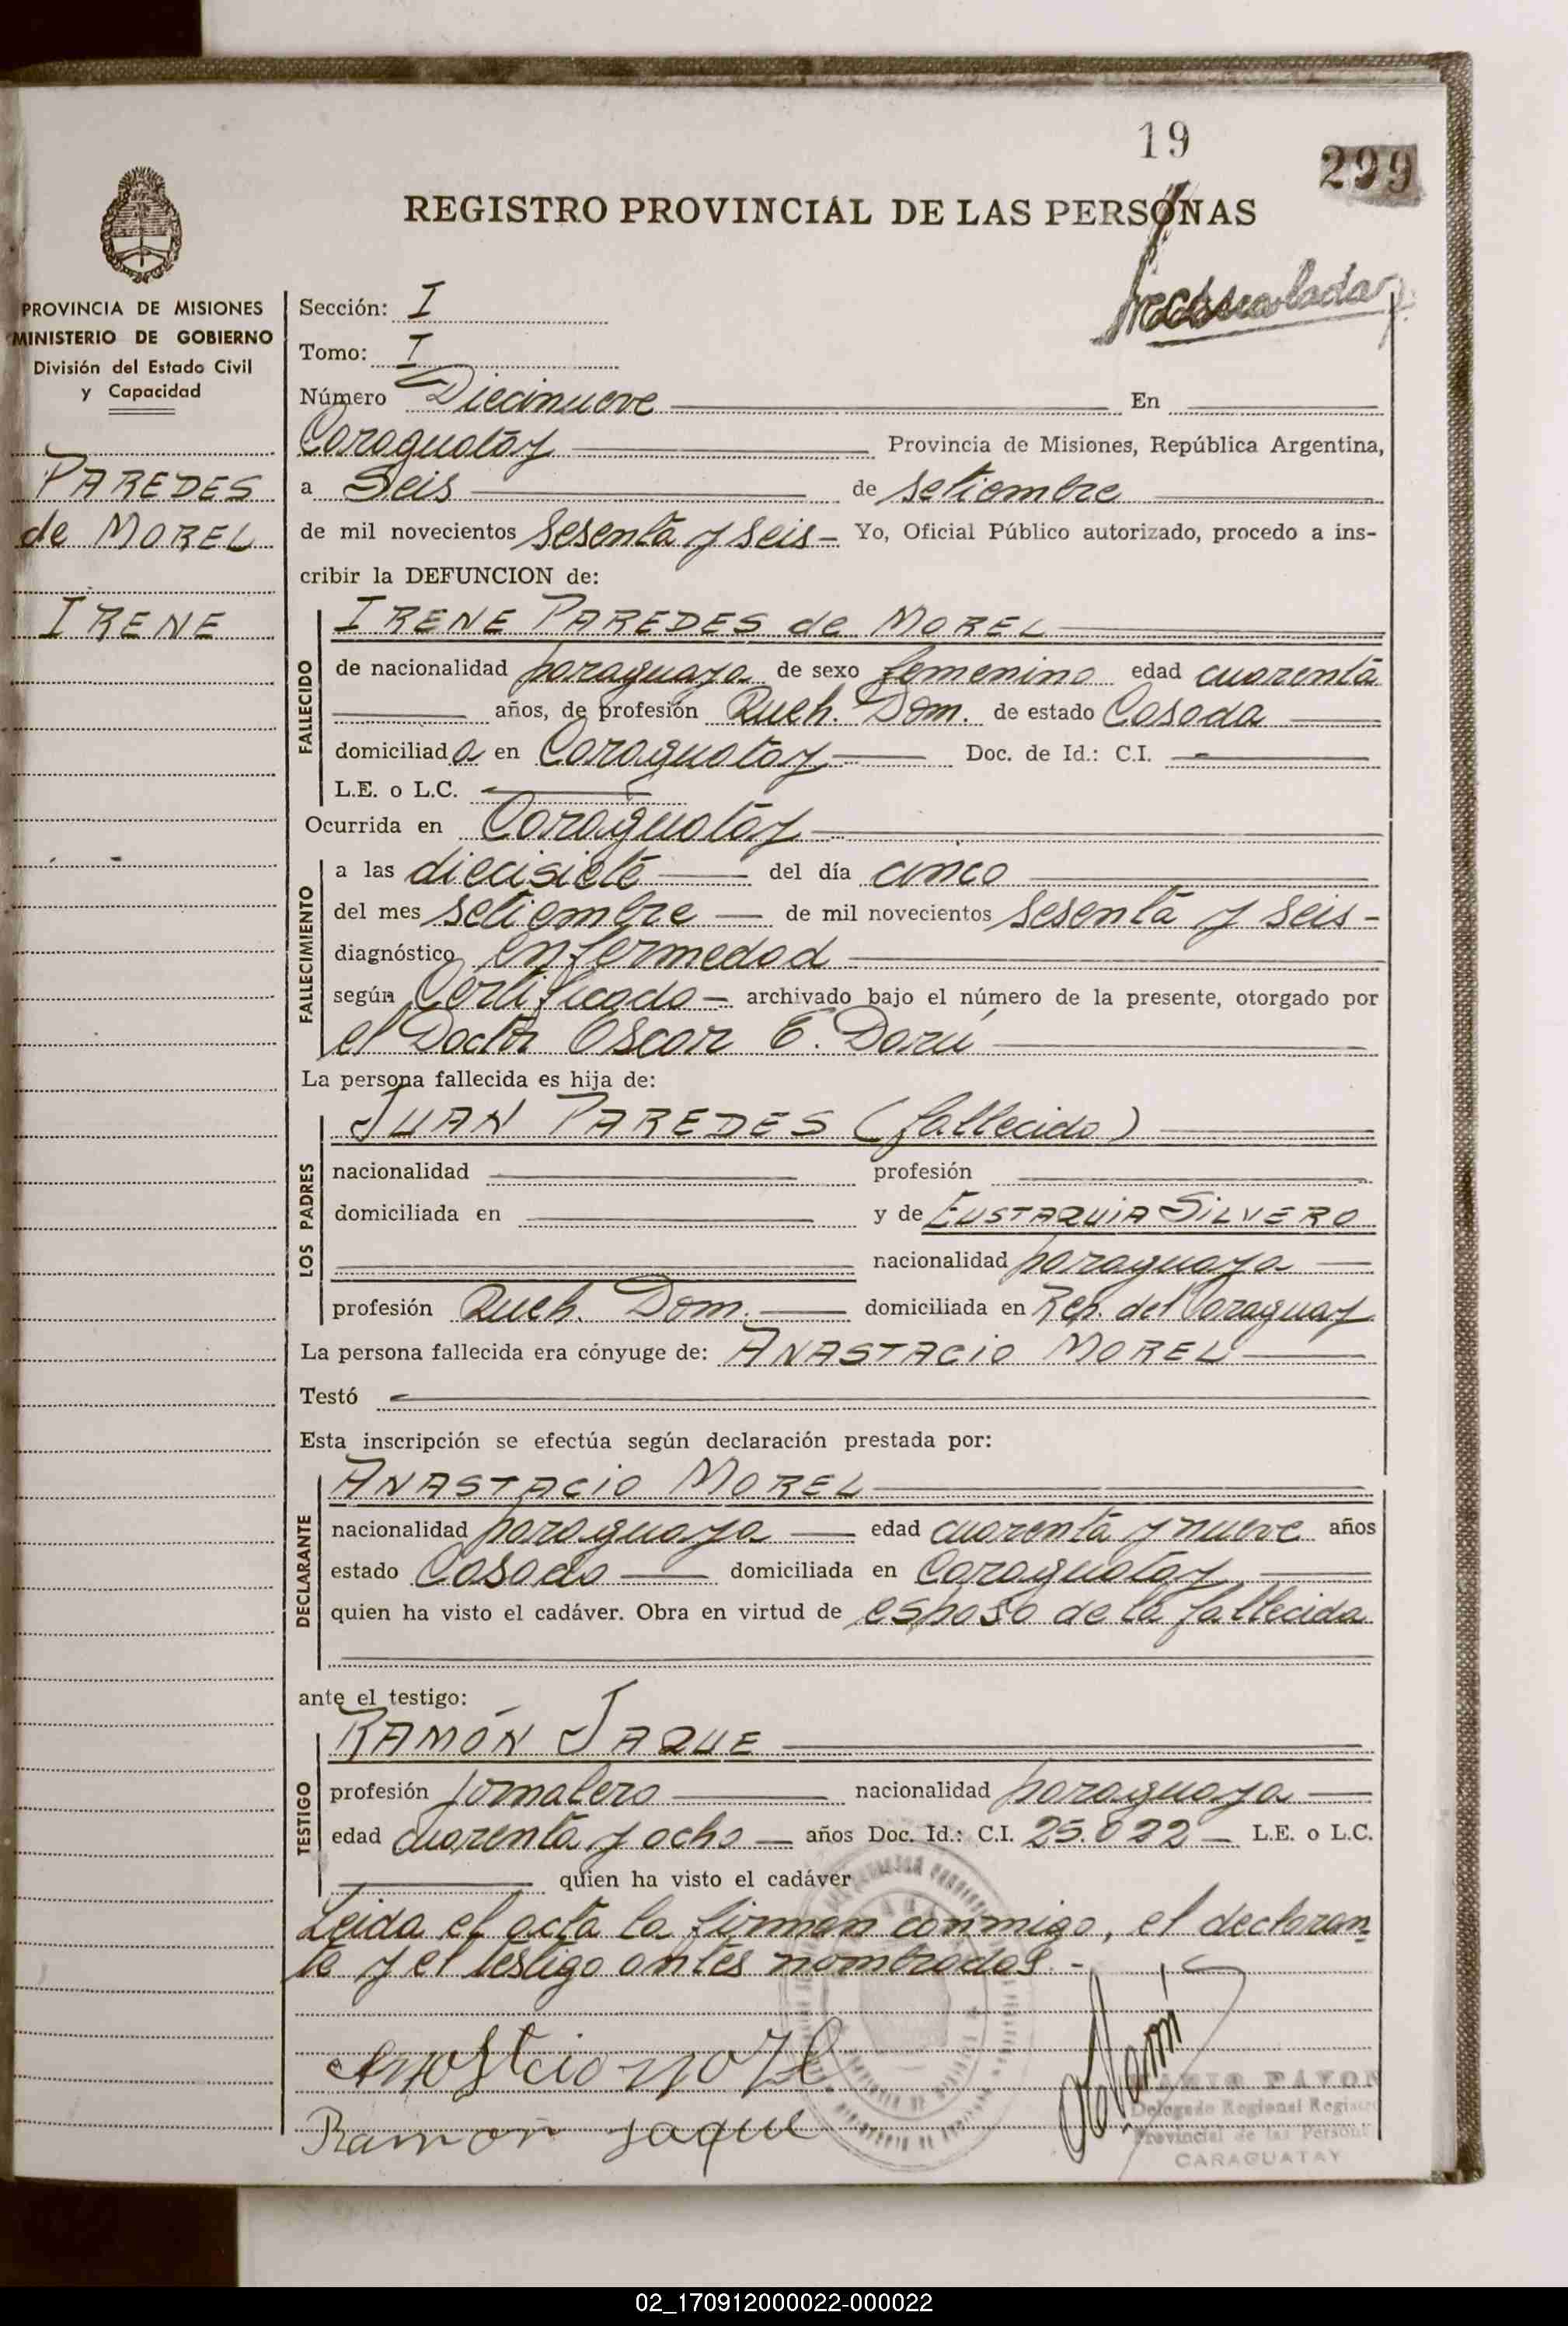 19
299
REGISTRO PROVINCIAL DE LAS PERSONAS
PROVINCIA DE MISIONES
MINISTERIO DE GOBIERNO
División del Estado Civil
y Capacidad
PAREDES
de MOREL
IRENE
Sección: I
Tomo: I
Número Diecinueve En
Caraguatay Provincia de Misiones, República Argentina,
a Seis de setiembre
de mil novecientos sesenta y seis - Yo, Oficial Público autorizado, procedo a ins-
cribir la DEFUNCION de:
FALLECIDO
IRENE PAREDES de MOREL
de nacionalidad paraguaya de sexo femenino edad cuarenta
años, de profesión Queh. Dom. de estado Casada
domiciliada en Caraguatay Doc. de Id.: C.I.
L.E. o L.C.
Ocurrida en Caraguatay
FALLECIMIENTO
a las diecisiete del día cinco
del mes setiembre de mil novecientos sesenta y seis -
diagnóstico enfermedad
según Certificado - archivado bajo el número de la presente, otorgado por
el Doctor Oscar E. Darú
La persona fallecida es hija de:
LOS PADRES
JUAN PAREDES (fallecido)
nacionalidad profesión
domiciliada en y de EUSTAQUIA SILVERO
nacionalidad paraguaya
profesión Queh. Dom. domiciliada en Rep. del Paraguay
La persona fallecida era cónyuge de: ANASTACIO MOREL
Testó
Esta inscripción se efectúa según declaración prestada por:
DECLARANTE
ANASTACIO MOREL
nacionalidad paraguaya edad cuarenta y nueve años
estado Casado domiciliada en Caraguatay
quien ha visto el cadáver. Obra en virtud de esposo de la fallecida
ante el testigo:
TESTIGO
RAMÓN JAQUE
profesión jornalero nacionalidad paraguaya
edad cuarenta y ocho - años Doc. Id.: C.I. 25.022 - L.E. o L.C.
quien ha visto el cadáver
Leida el acta la firman conmigo, el declaran-
te y el testigo antes nombrados. -
Ramon Jaque
MARIO PAYON
Delegado Regional Registro
Provincial de las Persona
CARAGUATAY
02_170912000022-000022